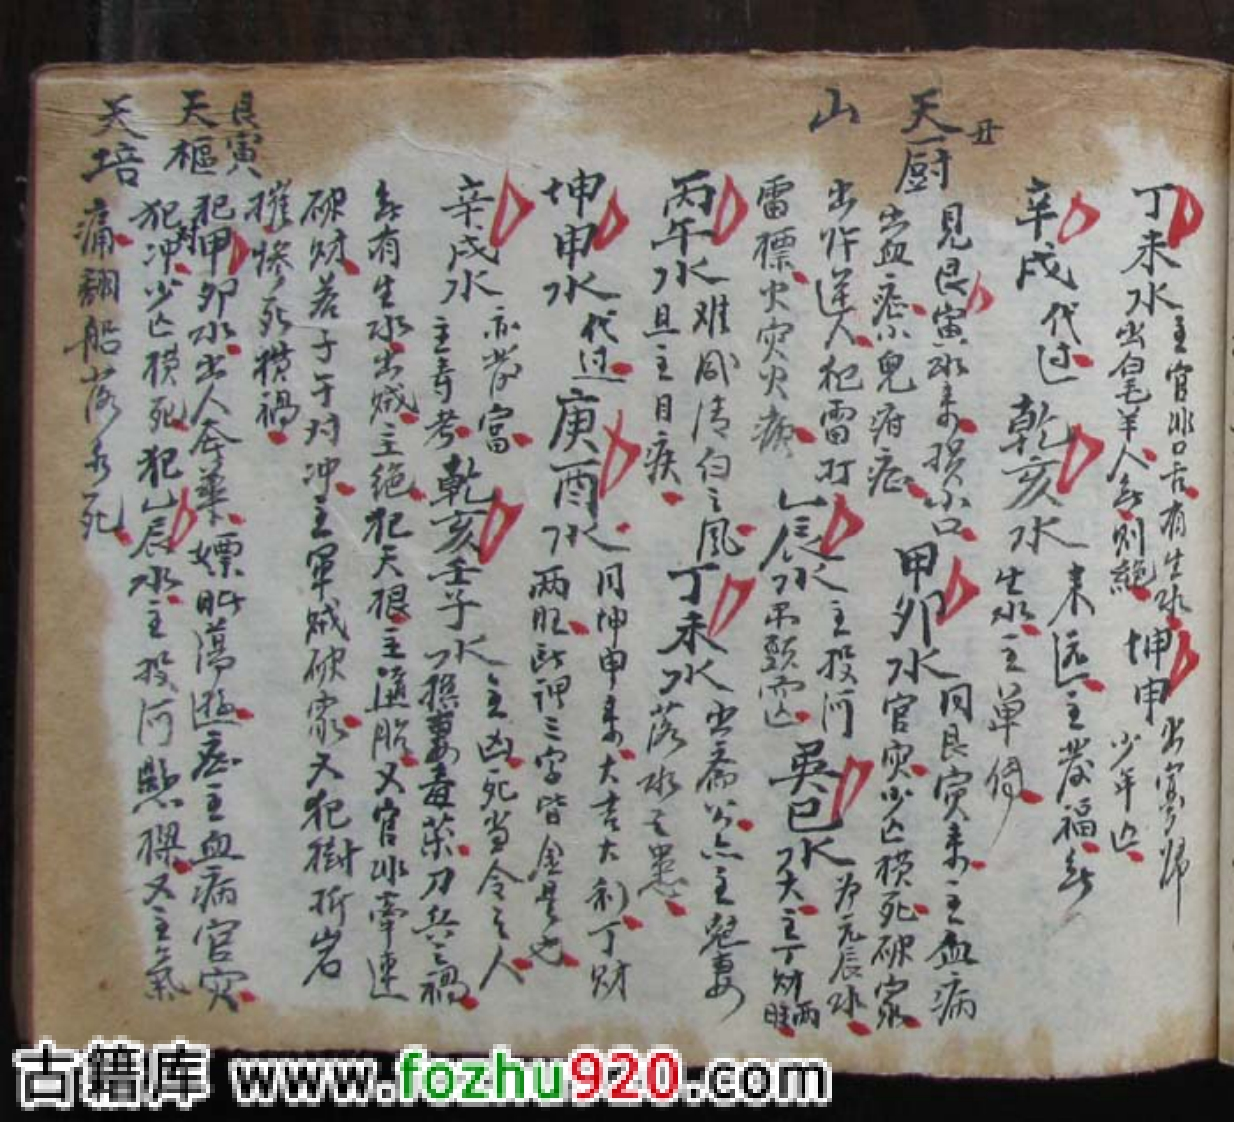 丁未水主官非口舌有生水坤申出寡婦
出白毛羊人無則絕 少年亡
辛戌代过乾亥水來遠主發福無
生水主單傳
丑
天厨 見艮寅水來損小口甲卯水同艮寅來主血病
出血症小兒疳症 官灾少亡横死破家
山 出忤逆人犯雷打乙辰水主投河巽巳水為元辰水
雷標火灾火癀 吊頸而亡 大主丁財两旺
丙午水难咸清白之風丁未水出斋公亦主尅妻
且主目疾 落水之患
坤申水代过庚酉水同坤申來大吉大利丁財
两旺 三字皆金星也
辛戌水亦發富
主壽考乾亥壬子水主凶死当令之人
損妻毒藥刀兵之禍
無有生水出贼主絕犯天根主墮胎又官非牽連
破財若子午对冲主軍贼破家又犯樹折岩
摧惨死横禍
艮寅
天樞 犯甲卯水出人奔 嫖 蕩 主血病官灾
对
天培 犯冲少亡横死犯乙辰水主投河懸樑又主氣
痛翻船落水死
古籍库 www.fozhu920.com